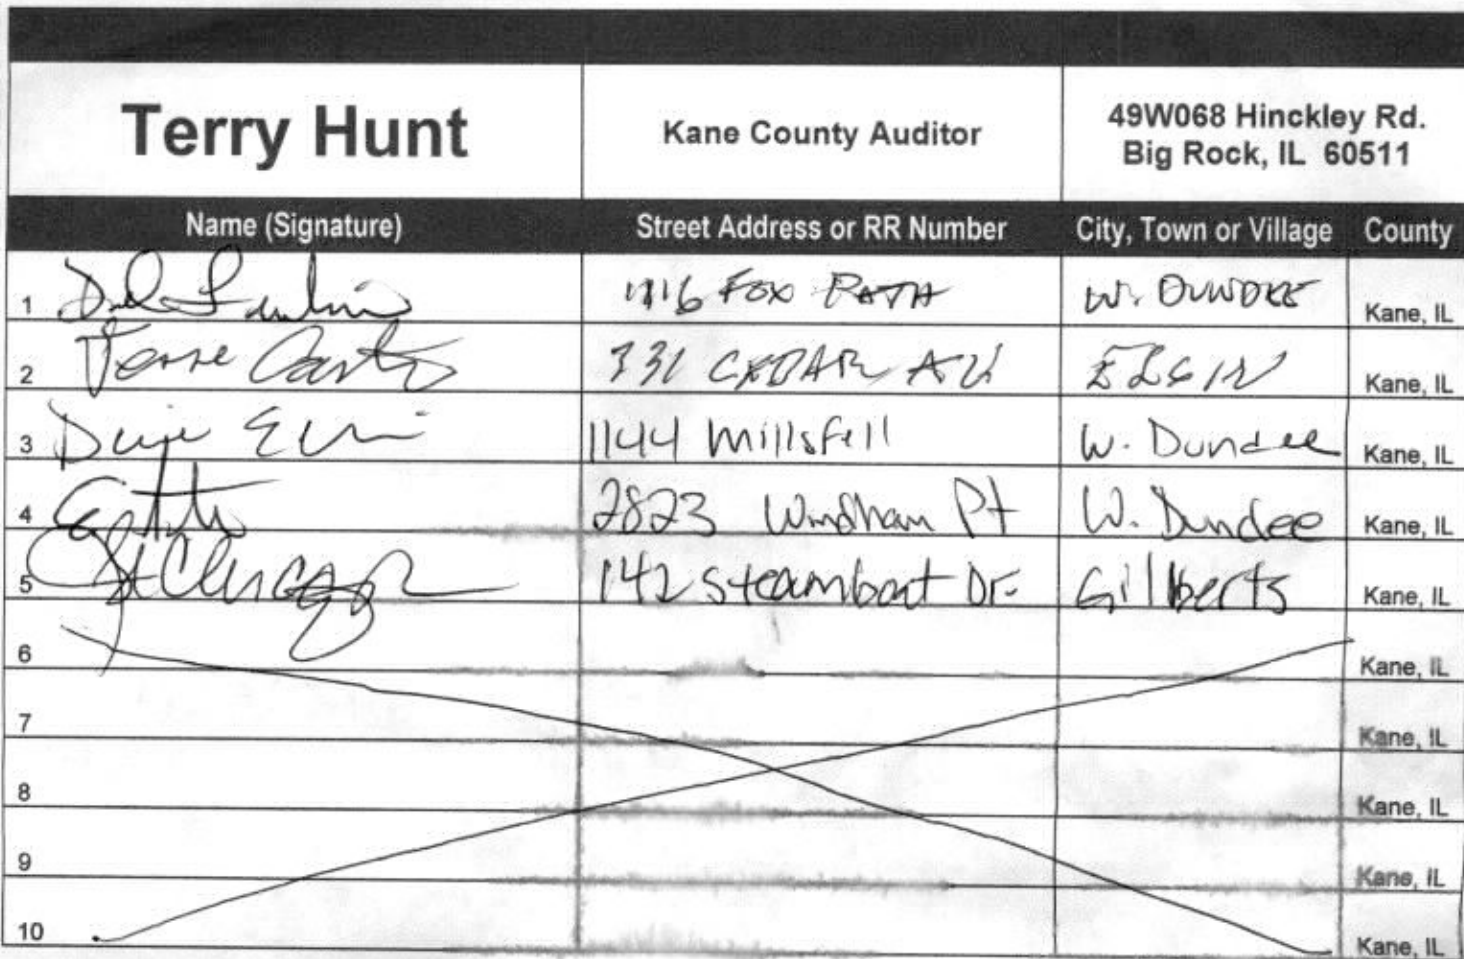 Terry Hunt
Kane County Auditor
49W068 Hinckley Rd.
Big Rock, IL 60511
Name (Signature) Street Address or RR Number City, Town or Village County
1 Fox PATH W. DUNDEE Kane, IL
2 331 CEDAR AV ELGIN Kane, IL
3 1144 Millsfell W. Dundee Kane, IL
4 2823 Windham Pt W. Dundee Kane, IL
5 142 Steamboat Dr. Gilberts Kane, IL
6 Kane, IL
7 Kane, IL
8 Kane, IL
9 Kane, IL
10 Kane, IL